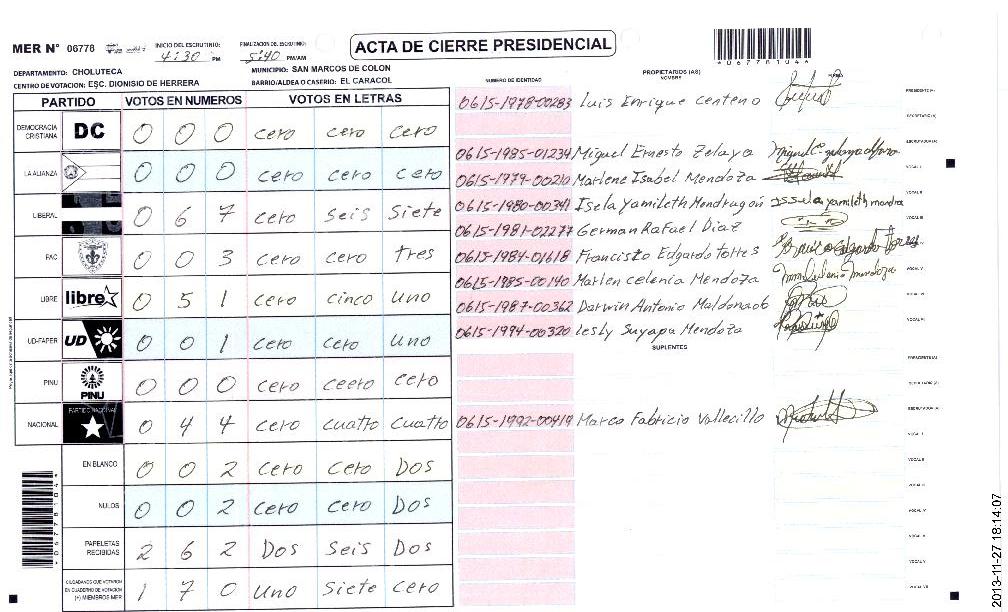 MER N° 06778 INICIO DEL ESCRUTINIO: 4:30 PM FINALIZACION DEL ESCRUTINIO: 5:40 PM/AM ACTA DE CIERRE PRESIDENCIAL
DEPARTAMENTO: CHOLUTECA MUNICIPIO: SAN MARCOS DE COLON
CENTRO DE VOTACION: ESC. DIONISIO DE HERRERA BARRIO/ALDEA O CASERIO: EL CARACOL
NUMERO DE IDENTIDAD PROPIETARIOS (AS) NOMBRE FIRMA
PARTIDO VOTOS EN NUMEROS VOTOS EN LETRAS
DEMOCRACIA CRISTIANA DC 0 0 0 cero cero cero
LA ALIANZA 0 0 0 cero cero cero
LIBERAL 0 6 7 cero seis siete
PAC 0 0 3 cero cero tres
LIBRE libre 0 5 1 cero cinco uno
UD-FAPER UD 0 0 1 cero cero uno
PINU PINU 0 0 0 cero ceero cero
NACIONAL PARTIDO NACIONAL 0 4 4 cero cuatro cuatro
EN BLANCO 0 0 2 cero cero Dos
NULOS 0 0 2 cero cero Dos
PAPELETAS RECIBIDAS 2 6 2 Dos seis Dos
CIUDADANOS QUE VOTARON EN CUADERNO DE VOTACION (+) MIEMBROS MER 1 7 0 uno siete cero
0615-1978-00283 Luis Enrique Centeno PRESIDENTE (A)
SECRETARIO (A)
0615-1985-01234 Miguel Ernesto Zelaya ESCRUTADOR (A)
0615-1979-00210 Marlene Isabel Mendoza VOCAL I
0615-1980-00341 Isela Yamileth Mendragon VOCAL II
0615-1981-02277 German Rafael Diaz VOCAL III
0615-1984-01618 Francisto Edgardo Torres VOCAL IV
0615-1985-00140 Marlen Celenia Mendoza VOCAL V
0615-1987-00362 Darwin Antonio Maldonado VOCAL VI
0615-1994-00320 Lesly Suyapa Mendoza VOCAL VII
SUPLENTES
PRESIDENTE (A)
SECRETARIO (A)
0615-1992-00419 Marco Fabricio Vallecillo ESCRUTADOR (A)
VOCAL I
VOCAL II
VOCAL III
VOCAL IV
VOCAL V
VOCAL VI
VOCAL VII
2013-11-27 18:14:07